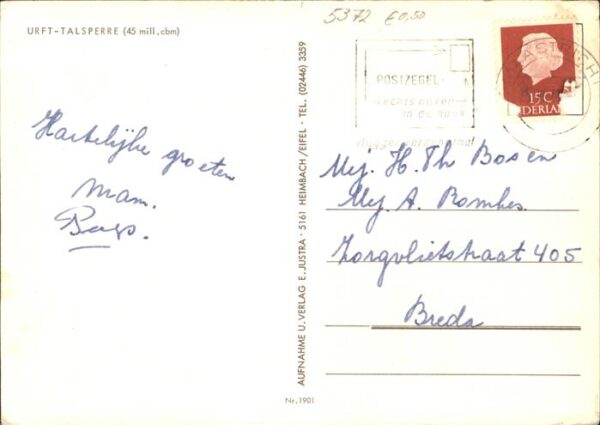 URFT-TALSPERRE (45 mill.cbm)
5372 €0,50
POSTZEGEL
rechts bovenaan
in de hoek
MAASTRICHT
15 C
NEDERLAND
Hartelijke groeten
Mam.
AUFNAHME U. VERLAG E. JUSTRA · 5161 HEIMBACH / EIFEL · TEL. (02446) 3359
Nr. 1901
Mej. H. Th Bosen
Mej A. Rombes.
Zorgvlietstraat 405
Breda